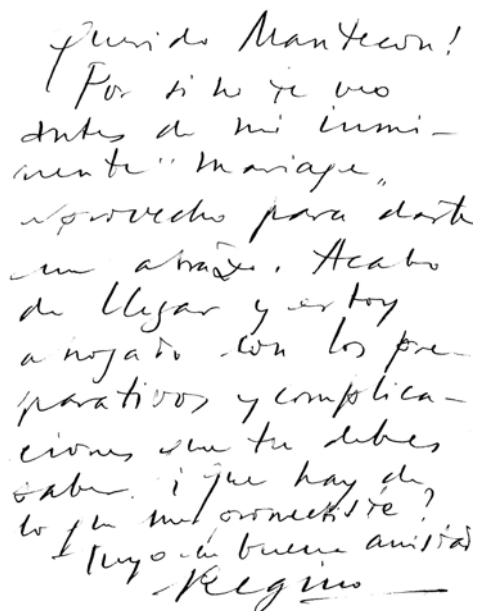 Querido Mantecon!
Por si no te veo
antes de mi inmi-
nente "mariage"
aprovecho para darte
un abrazo. Acabo
de llegar y estoy
ahogado con los pre-
parativos y complica-
ciones que tu debes
saber. ¿que hay de
lo que me prometiste?
Tuyo en buena amistad
Regino